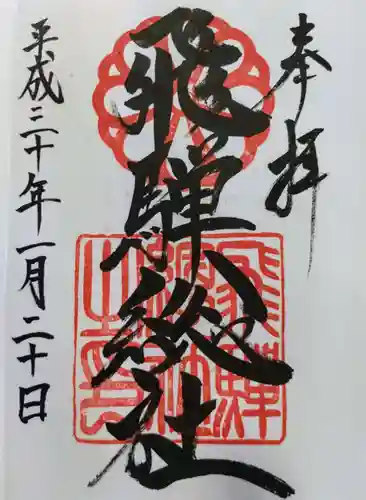 奉拝
飛騨総社
平成三十年一月二十日
飛騨総社之印